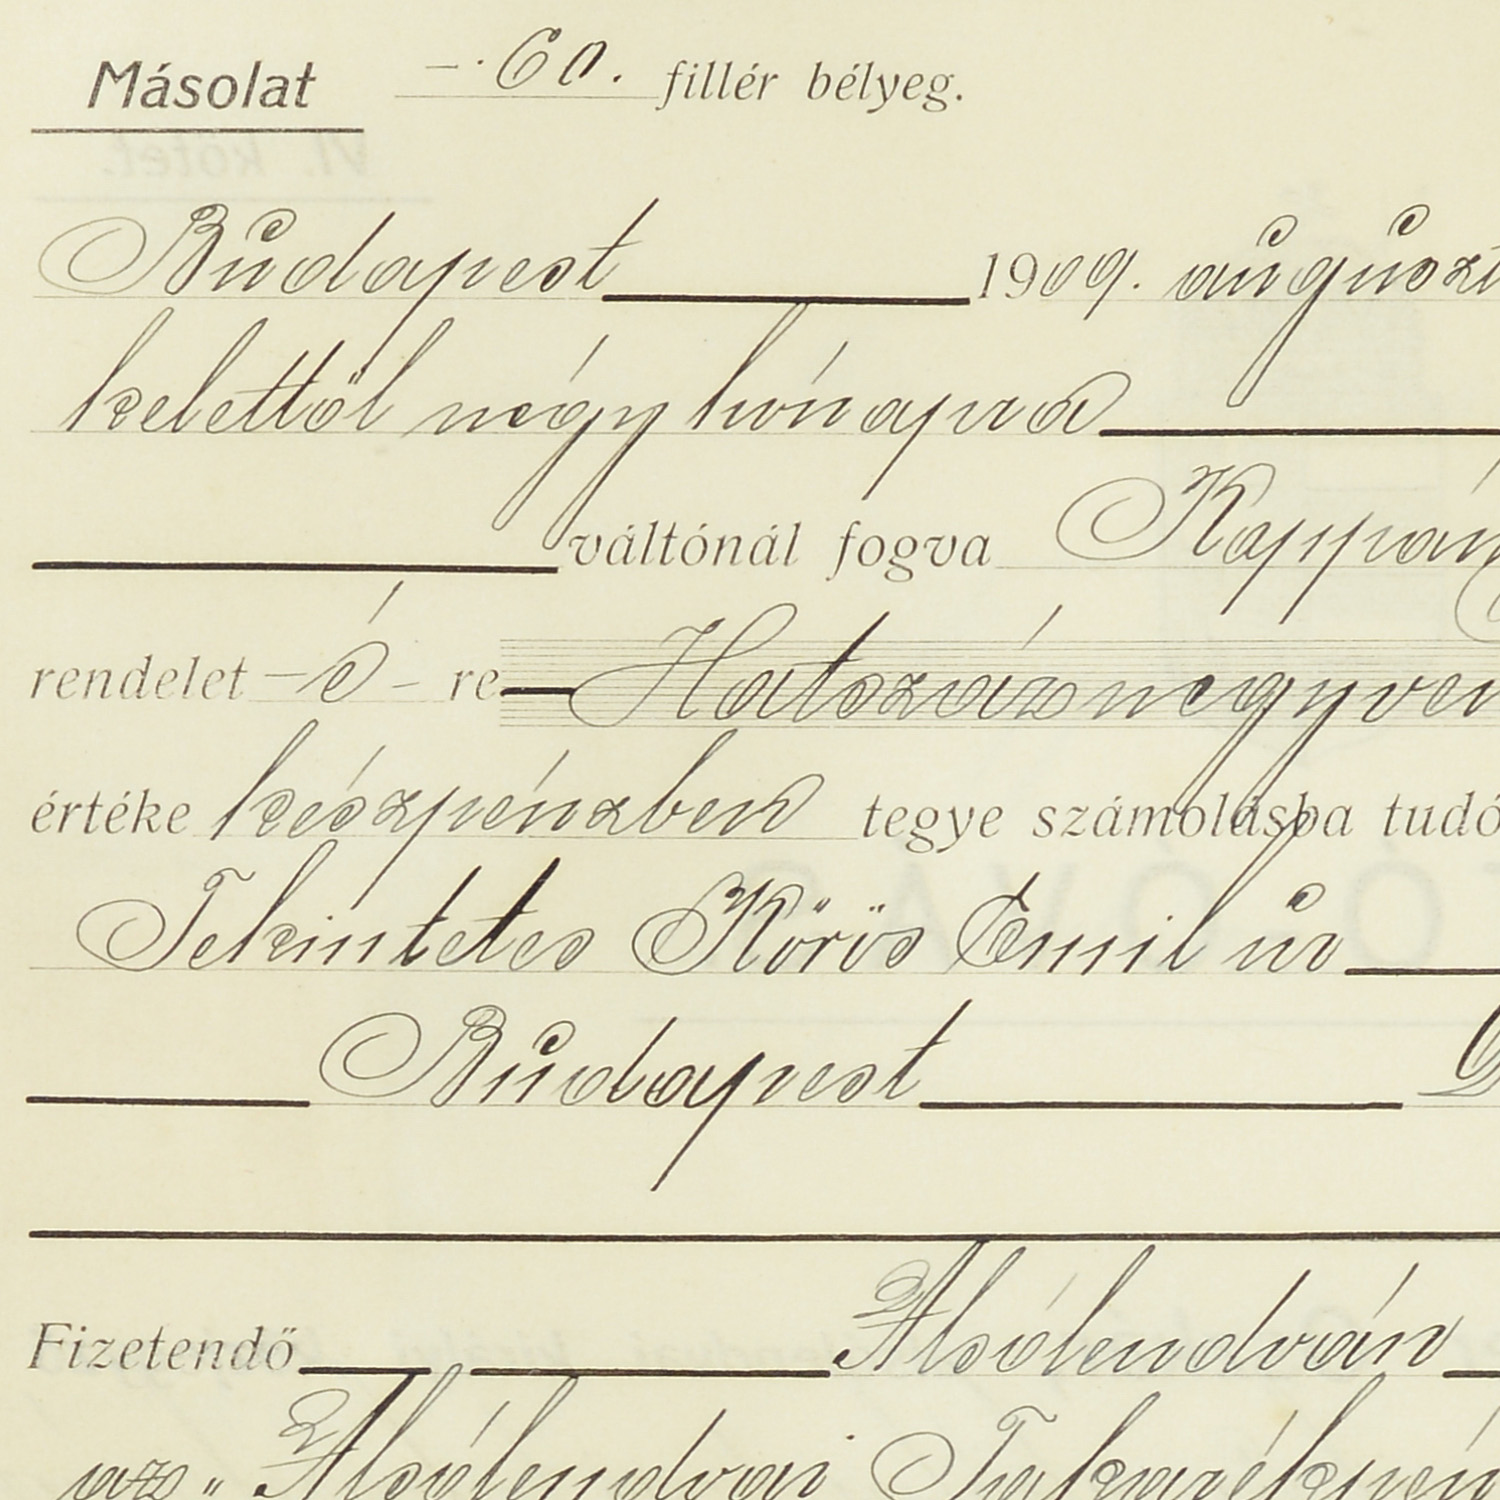 Másolat –·60. fillér bélyeg.
Budapest 1909. auguszt
kelettől négy hónapra
váltónál fogva Kappán
rendelet –é– re Hatszáznegyven
értéke készpénzben tegye számolásba tudó
Tekintetes Körös Emil úr
Budapest
Fizetendő Alsólendván
az „Alsólendvai Takarékpén